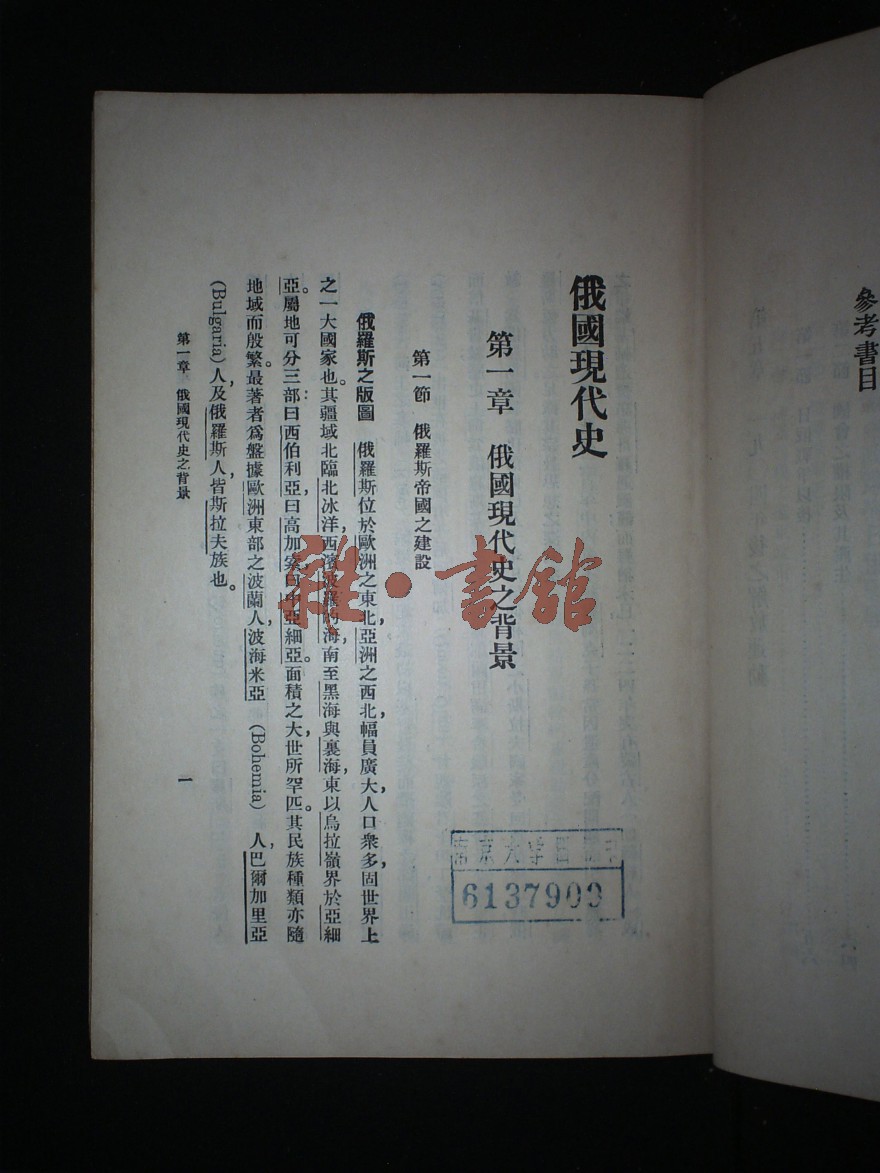 參考書目
俄國現代史
第一章　俄國現代史之背景
第一節　俄羅斯帝國之建設
俄羅斯之版圖　俄羅斯位於歐洲之東北，亞洲之西北，幅員廣大，人口衆多，固世界上
之一大國家也。其疆域北臨北冰洋，西濱波羅的海，南至黑海與裏海，東以烏拉嶺界於亞細
亞。屬地可分三部：曰西伯利亞，曰高加索，曰中亞細亞。面積之大，世所罕匹。其民族種類，亦隨
地域而殷繁。最著者爲盤據歐洲東部之波蘭人，波海米亞 (Bohemia) 人，巴爾加里亞
(Bulgaria) 人，及俄羅斯人，皆斯拉夫族也。
第一章　俄國現代史之背景
一
雜·書館
6137909